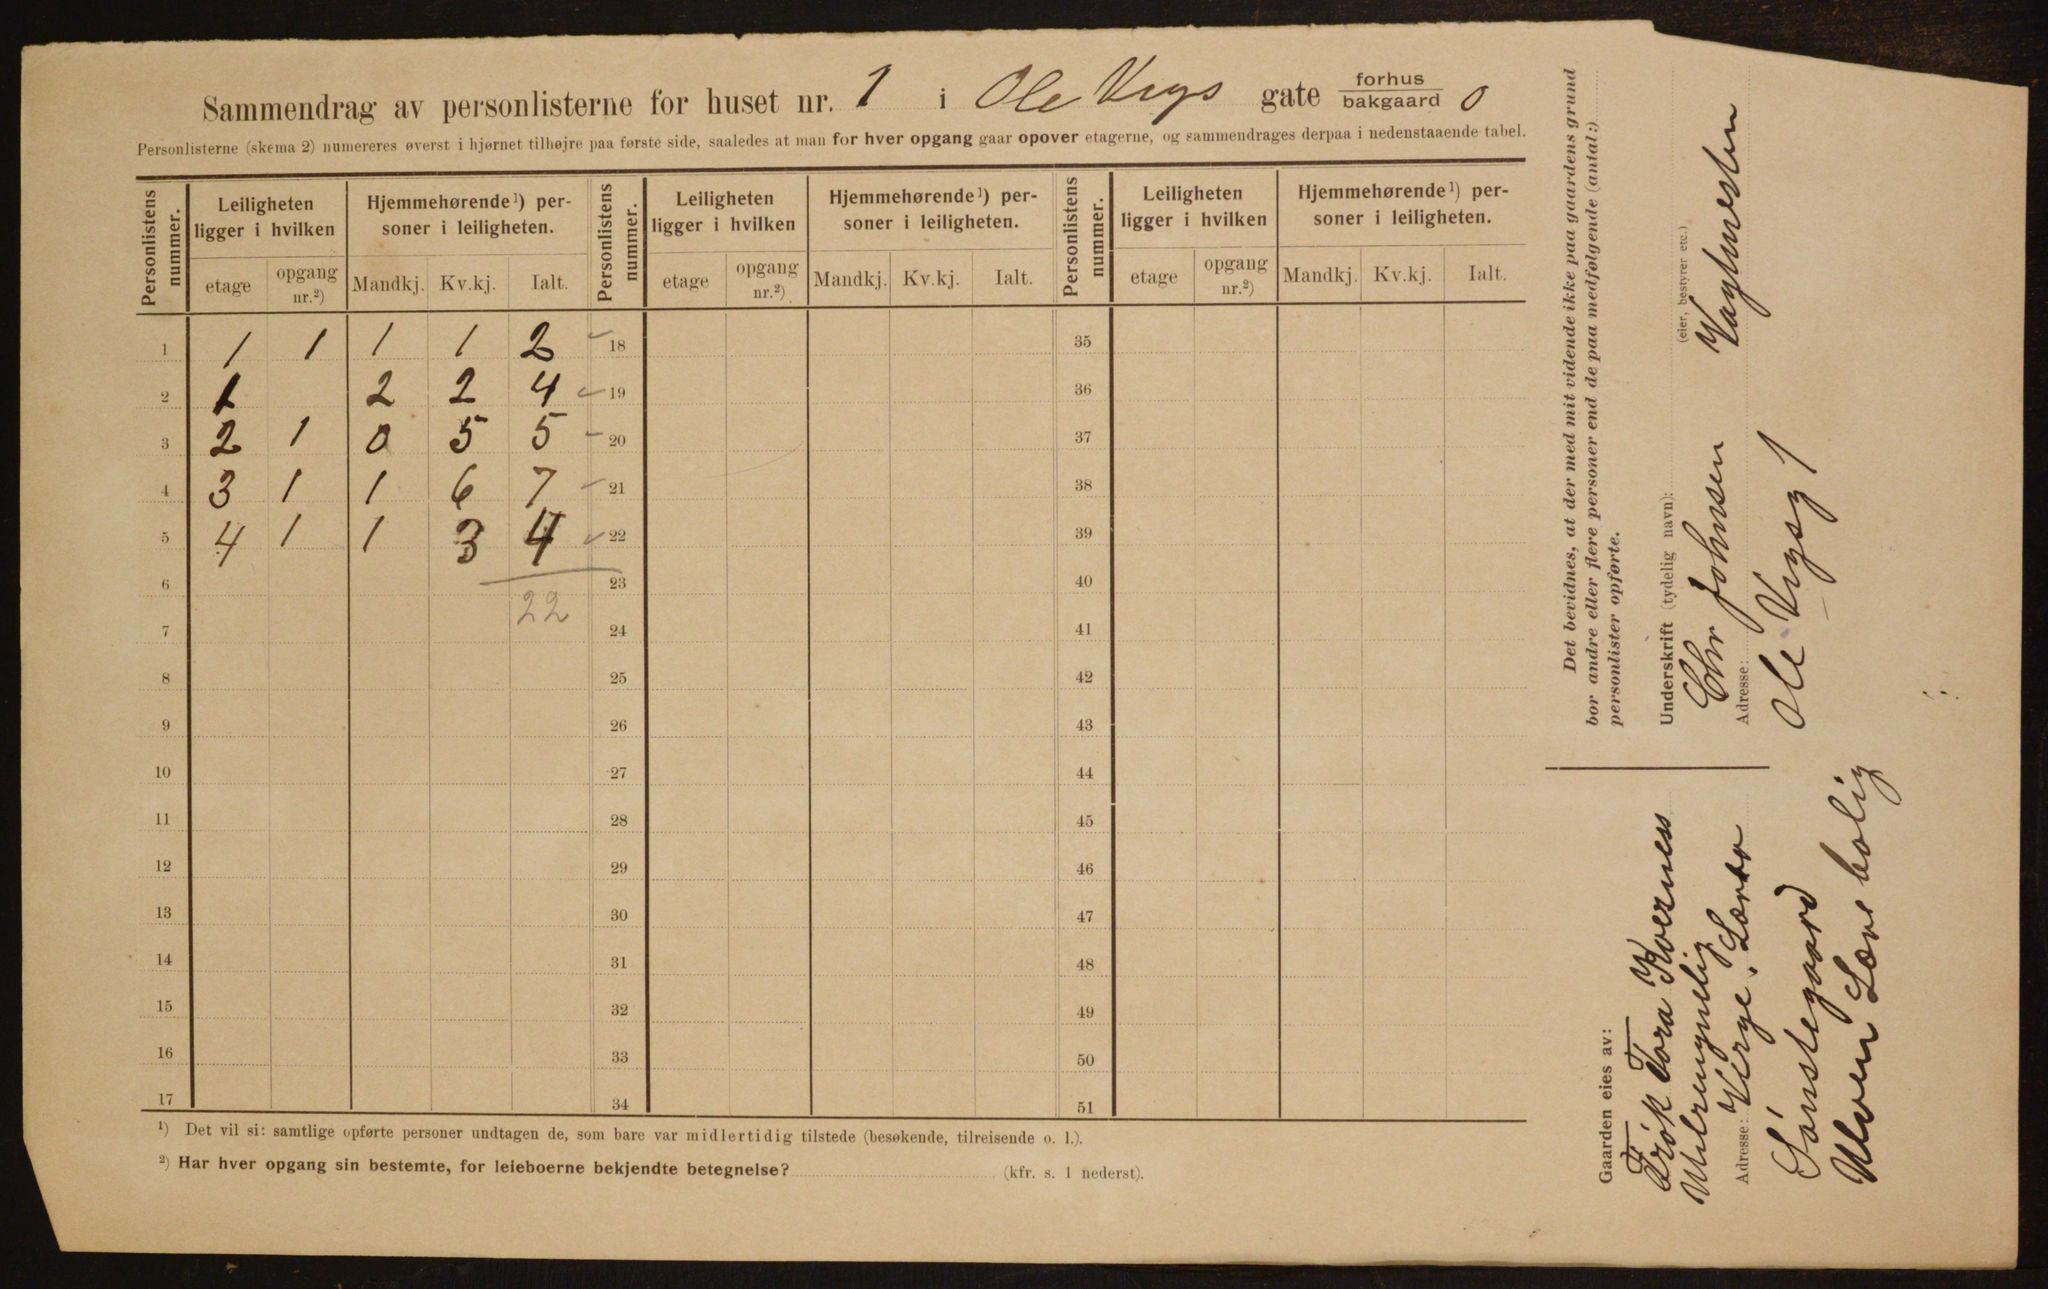 Sammendrag av personlisterne for huset nr. 1 i Ole Vigs gate forhus bakgaard 0
Personlisterne (skema 2) numereres øverst i hjørnet tilhøjre paa første side, saaledes at man for hver opgang gaar opover etagerne, og sammendrages derpaa i nedenstaaende tabel.
Personlistens nummer. Leiligheten ligger i hvilken Hjemmehørende¹) personer i leiligheten. Personlistens nummer. Leiligheten ligger i hvilken Hjemmehørende¹) personer i leiligheten. Personlistens nummer. Leiligheten ligger i hvilken Hjemmehørende¹) personer i leiligheten.
etage opgang nr.²) Mandkj. Kv.kj. Ialt. etage opgang nr.²) Mandkj. Kv.kj. Ialt. etage opgang nr.²) Mandkj. Kv.kj. Ialt.
1 1 1 1 1 2 18 35
2 1 2 2 4 19 36
3 2 1 0 5 5 20 37
4 3 1 1 6 7 21 38
5 4 1 1 3 4 22 39
6 23 40
22
7 24 41
8 25 42
9 26 43
10 27 44
11 28 45
12 29 46
13 30 47
14 31 48
15 32 49
16 33 50
17 34 51
¹) Det vil si: samtlige opførte personer undtagen de, som bare var midlertidig tilstede (besøkende, tilreisende o. l.).
²) Har hver opgang sin bestemte, for leieboerne bekjendte betegnelse? (kfr. s. 1 nederst).
Det bevidnes, at der med mit vidende ikke paa gaardens grund
bor andre eller flere personer end de paa medfølgende (antal:)
personlister opførte.
Underskrift (tydelig navn): (eier, bestyrer etc.)
Chr Johnsen Vagtmesten
Adresse:
Ole Vigsg 1
Gaarden eies av:
Frøk Tora Kverness
Umyndig
Adresse: Verge. Lærer
Sønstegaard
Uloen Lære bolig